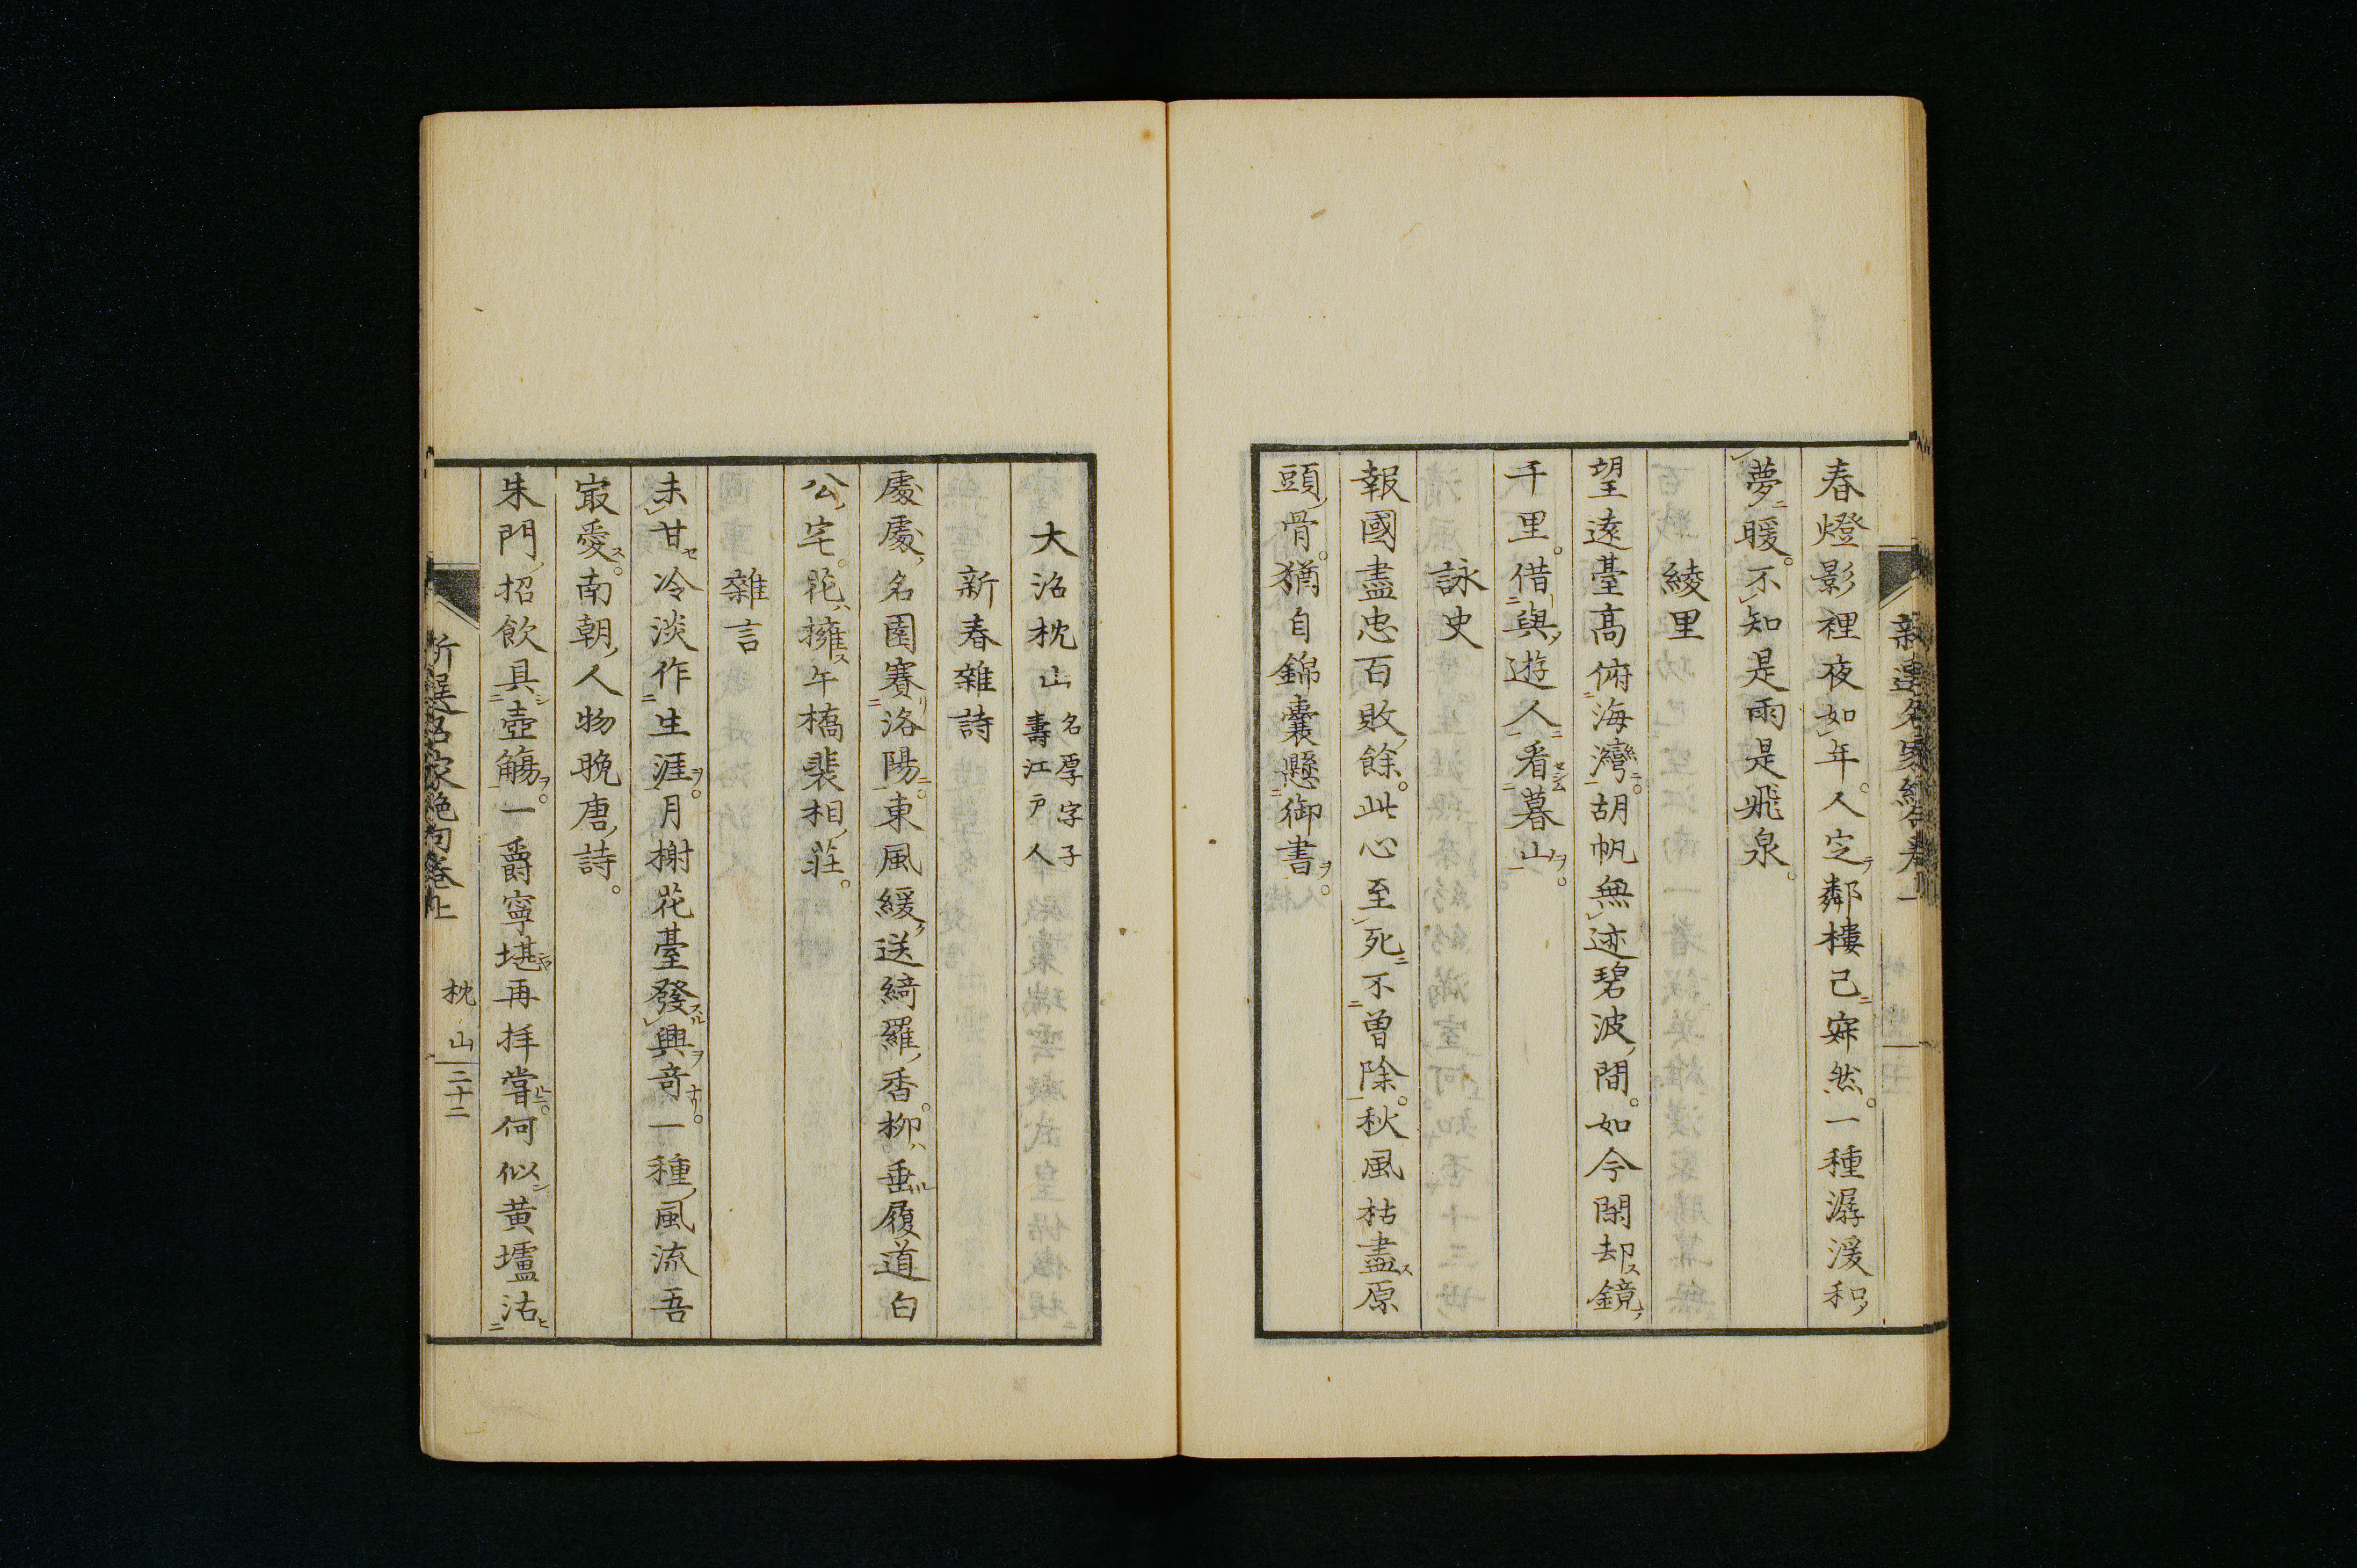 春燈影裡夜如年。人定鄰樓已寂然。一種潺湲和
夢暖。不知是雨是飛泉。
綾里
望遠臺高俯海灣。胡帆無迹碧波間。如今閑却鏡
千里。借與遊人看暮山。
詠史
報國盡忠百敗餘。此心至死不曽除。秋風枯盡原
頭骨。猶自錦囊懸御書。
大沼枕山 名厚字子
壽江戸人
新春雜詩
處處名園賽洛陽。東風緩送綺羅香。柳垂履道白
公宅。花擁午橋裴相莊。
雜言
未甘冷淡作生涯。月榭花臺發興奇。一種風流吾
冣愛。南朝人物晩唐詩。
朱門招飲具壺觴。一爵寧堪再拜甞。何似黄壚沽
新選名家絶句卷上 枕山 二十二